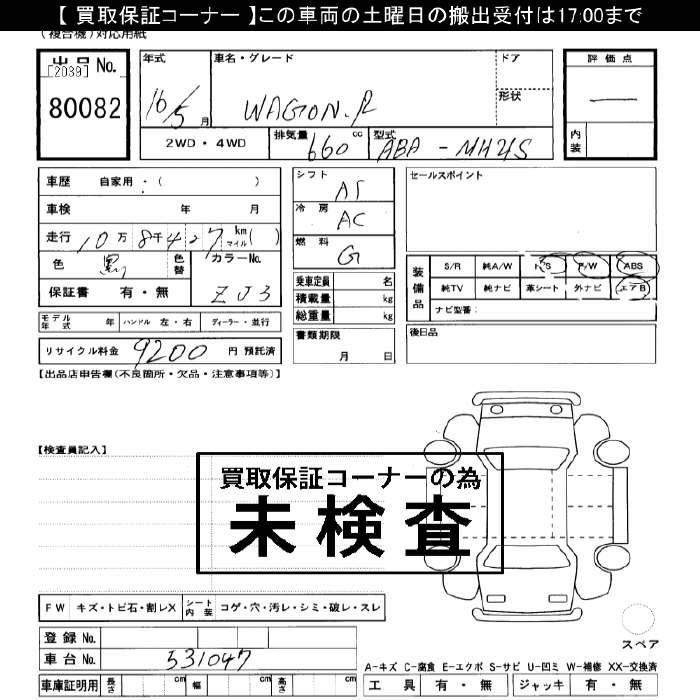 【 買取保証コーナー 】この車両の土曜日の搬出受付は17:00まで
(複合機)対応用紙
出品 No.
[2039]
80082
年式
16/5 月
車名・グレード
WAGON.R
ドア
形状
評価点
—
内装
2WD・4WD
排気量 660 cc
型式 ABA-MH21S
車歴 自家用・( )
車検 年 月
走行 10万 8千427 km マイル( )
色 黒 色替
カラーNo. ZJ3
保証書 有・無
シフト AT
冷房 AC
燃料 G
乗車定員 名
積載量 kg
総重量 kg
書類期限
月 日
セールスポイント
装備品
S/R 純A/W P/S P/W ABS
純TV 純ナビ 革シート 外ナビ エアB
ナビ型番:
後日品
モデル年式 年 ハンドル 左・右 ディーラー・並行
リサイクル料金 9200 円 預託済
【出品店申告欄(不良箇所・欠品・注意事項等)】
【検査員記入】
買取保証コーナーの為
未検査
FW キズ・トビ石・割レX シート内装 コゲ・穴・汚レ・シミ・破レ・スレ
登録 No.
車台 No. 531047
車庫証明用 長さ cm 幅 cm 高さ cm
スペア
A-キズ C-腐食 E-エクボ S-サビ U-凹ミ W-補修 XX-交換済
工具 有・無 ジャッキ 有・無